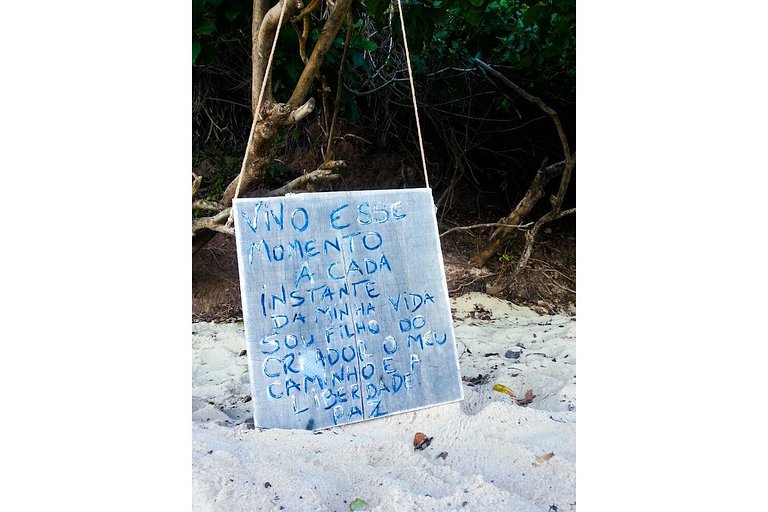 VIVO ESSE
MOMENTO
A CADA
INSTANTE
DA MINHA VIDA
SOU FILHO DO
CRIADOR O MEU
CAMINHO E A
LIBERDADE
PAZ